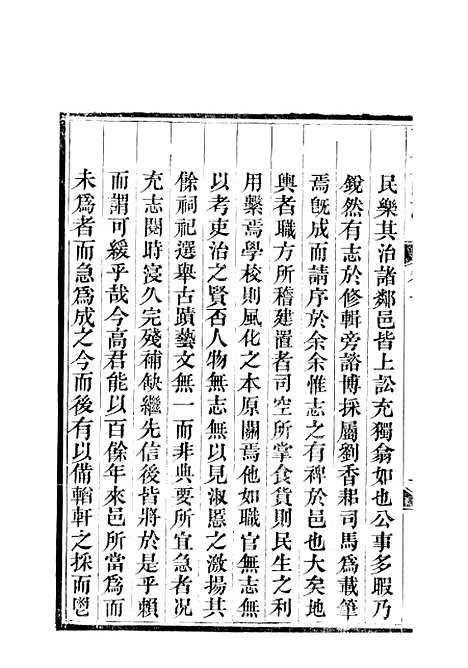 民樂其治諸鄰邑皆上訟充獨翕如也公事多暇乃
銳然有志於修輯旁諮博採屬劉香耜司馬爲載筆
焉旣成而請序於余余惟志之有裨於邑也大矣地
輿者職方所稽建置者司空所掌食貨則民生之利
用繫焉學校則風化之本原關焉他如職官無志無
以考吏治之賢否人物無志無以見淑慝之激揚其
餘祠祀選舉古蹟藝文無一而非典要所宜急者况
充志閱時寖久完殘補缺繼先信後皆將於是乎賴
而謂可緩乎哉今高君能以百餘年來邑所當爲而
未爲者而急爲成之今而後有以備輶軒之採而鬯